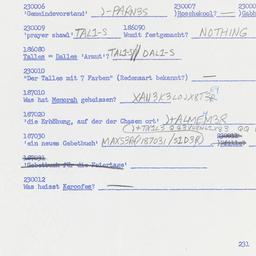 230006 230007 2300
'Gemeindevorstand' )-PARN3S )Boschekool? —
230009 186090
'prayer shawl' TAL1-S Womit festgemacht? NOTHING
186080
Talles = Dalles 'Armut'? TAL1-S // DAL1-S
230010
"Der Talles mit 7 Farben" (Redensart bekannt)? —
187010
Was hat Menorah geheissen?
187020
'die Erhöhung, auf der der Chasen ort' )+ALMEM3R
187030
'ein neues Gebetbuch' MAXS3R(187031/S1D3R)
187031
'Gebetbuch für die Feiertage'
230012
Was heisst Karoofes? —
231